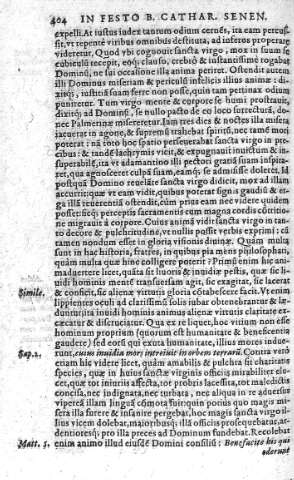 404 IN FESTO B. CATHAR. SENEN.
expelli. At iustus iudex tantum odium cernēs, ita eam percus-
sit, vt repente viribus omnibus destituta, ad inferos properare
videretur. Quod vbi cognouit sancta virgo, mox in suum se
cubiculū recepit, eoq; clauso, crebrò & instantissimè rogabat
Dominū, ne sui occasione illa anima periret. Ostendit autem
illi Dominus miseriam & periculū infelicis illius animæ: di-
xitq;, iustitiā suam ferre non posse, quin tam pertinax odium
puniretur. Tum virgo mente & corpore se humi prostrauit,
dixitq; ad Dominū, se nullo pacto de eo loco surrecturā, do-
nec Palmerinæ misereretur. Iam tres dies & noctes illa misera
iacuerat in agone, & supremū trahebat spiritū, nec tamē mori
poterat: nā toto hoc spatio perseuerabat sancta virgo in pre-
cibus: & tandē lachrymis vicit, & expugnauit inuictum & in-
superabilē, ita vt adamantino illi pectori gratiā suam inspira-
ret, qua agnosceret culpā suam, eamq; se admisisse doleret. Id
postquā Domino reuelāte sancta virgo didicit, mox ad illam
accurrit: vtque eam vidit, quibus poterat signis gaudiū & er-
ga illā reuerentiā ostendit, cùm prius eam nec videre quidem
posset: sicq; perceptis sacramentis cum magna cordis cōtritio-
ne migrauit à corpore. Cuius animā vidit sancta virgo in tan-
to decore & pulchritudine, vt nullis posset verbis exprimi: cū
tamen nondum esset in gloria visionis diuinæ. Quàm multa
sunt in hac historia, fratres, in quibus pia mens philosophari,
quàm multa quæ hinc colligere poterit? Primū enim hic ani-
maduertere licet, quāta sit liuoris & inuidiæ pestis, quæ sic li-
uidi hominis mentē transuersam agit, sic exagitat, sic lacerat
Simile. & conficit, sic alienæ virtutis gloria obtabescere facit. Vt enim
lippientes oculi ad clarissimū solis iubar obtenebrantur & læ-
duntur, ita inuidi hominis animus alienæ virtutis claritate ex-
cæcatur & discruciatur. Qua ex re liquet, hoc vitium non esse
hominum proprium (quorum est humanitate & beneficentia
gaudere) sed eorū qui exuta humanitate, illius mores indue-
Sap. 2. runt, cuius inuidia mors introiuit in orbem terrarū. Contra verò
etiam hic videre licet, quàm amabilis & pulchra sit charitatis
species, quæ in huius sanctæ virginis officiis mirabiliter eluc-
cet, quæ tot iniuriis affecta, tot probris lacessita, tot maledictis
concisa, nec indignata, nec turbata, nec aliqua in re aduersus
vipereā illam linguā cōmota fuit: quin potius quo magis mi-
sera illa furere & insanire pergebat, hoc magis sancta virgo il-
lius vicem dolebat, maioribusq; illā officiis prosequebatur, ar-
dentioresq; pro illa preces ad Dominum fundebat. Recolebat
Matt. 5. enim animo illud eiusdē Domini consiliū: Benefacite his qui
oderunt